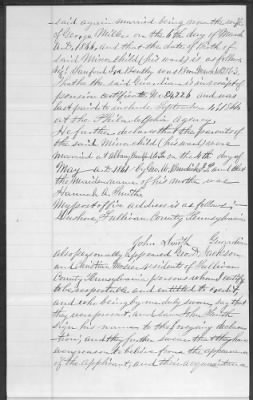 said again married being now the wife
of George Miller on the 6th day of March
A.D. 1866, and that the date of birth of
said minor child (his ward) is as follows
viz: Sanford Ira Bently was born March 10th
That he the said Guardian is in receipt of
pension certificate No and was
last paid to include September 4th 1866
at the Philadelphia Agency
He further declares that the parents of
the said minor child (his ward) were
married at on the 4th day of
May A.D. 1861 by Geo. W. and that
the maiden name of his mother was
Hannah A. Smith
My post office address is as follows:-
Dushore, Sullivan County Pennsylvania
John Smith Guardian
also personally appeared Geo. D. Jackson
and residents of Sullivan
County Pennsylvania, persons whom I certify
to be respectable and entitled to credit,
and who being by me duly sworn, say that
they were present and saw John Smith
sign his name to the foregoing declara-
tion; and they further swear that they have
every reason to believe from the appearance
of the applicant, and their acquaintance